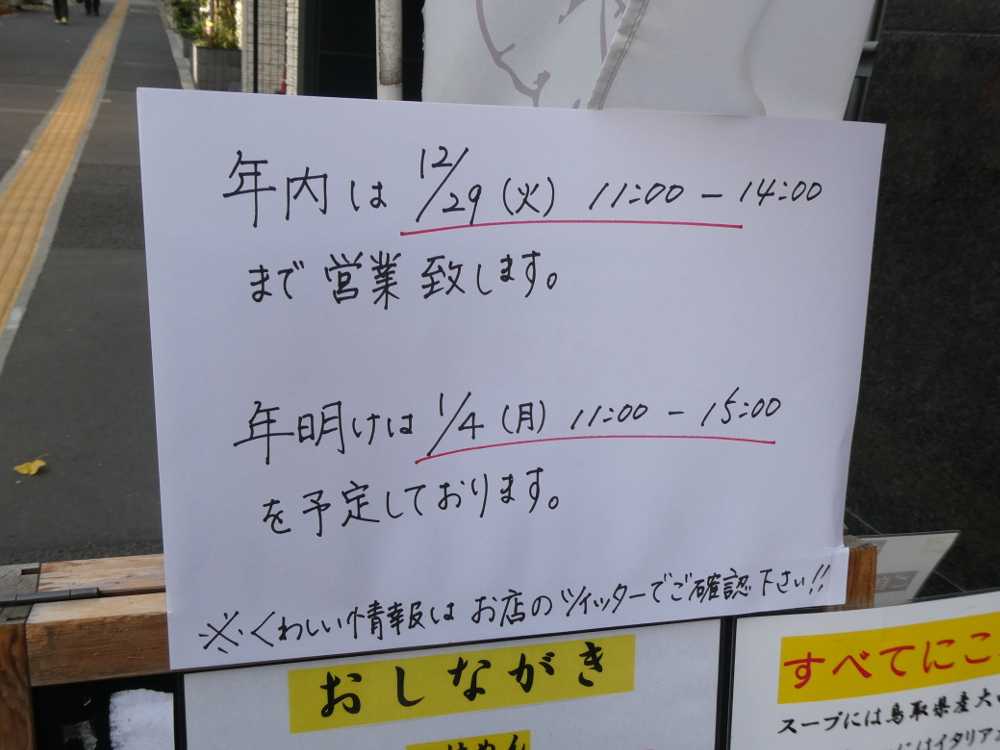 年内は 12/29 (火) 11:00 - 14:00
まで営業致します。
年明けは 1/4 (月) 11:00 - 15:00
を予定しております。
※くわしい情報は お店のツイッターでご確認下さい!!
おしながき
すべてにこ
スープには鳥取県産大
にはイタリア